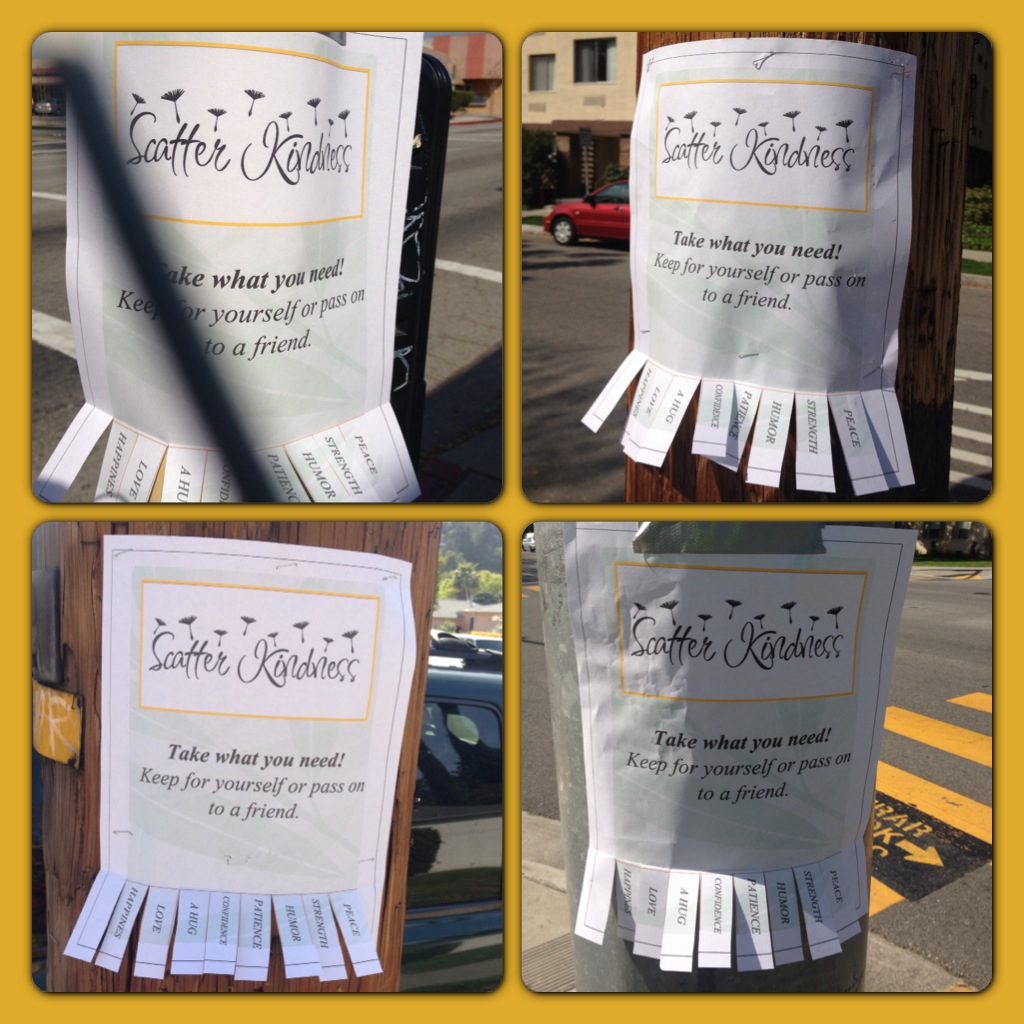 Scatter Kindness
Take what you need!
Keep for yourself or pass on
to a friend.
HAPPINESS
LOVE
A HU
PATIENC
HUMOR
STRENGTH
PEACE
Scatter Kindness
Take what you need!
Keep for yourself or pass on
to a friend.
HAPPINESS
LOVE
A HUG
CONFIDENCE
PATIENCE
HUMOR
STRENGTH
PEACE
Scatter Kindness
Take what you need!
Keep for yourself or pass on
to a friend.
HAPPINESS
LOVE
A HUG
CONFIDENCE
PATIENCE
HUMOR
STRENGTH
PEACE
Scatter Kindness
Take what you need!
Keep for yourself or pass on
to a friend.
HAPPINESS
LOVE
A HUG
CONFIDENCE
PATIENCE
HUMOR
STRENGTH
PEACE